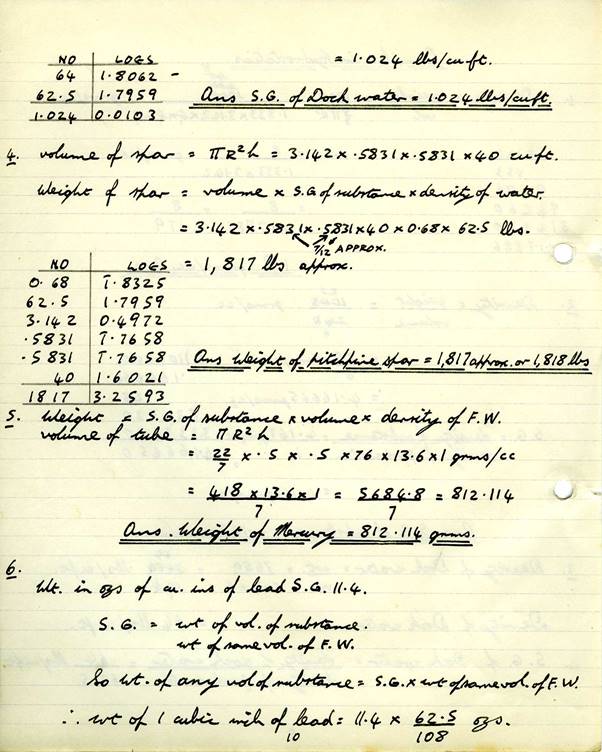 = 1.024 lbs/cu ft.
NO LOGS
64 1.8062 -
62.5 1.7959
1.024 0.0103
Ans S.G. of Dock water = 1.024 lbs/cuft.
4. volume of spar = πR²h = 3.142 x .5831 x .5831 x 40 cu ft.
Weight of spar = volume x S.G of substance x density of water.
= 3.142 x .5831 x .5831 x 40 x 0.68 x 62.5 lbs.
7/12 APPROX.
= 1,817 lbs approx.
NO LOGS
0.68 1̄.8325
62.5 1.7959
3.142 0.4972
.5831 1̄.7658
.5831 1̄.7658
40 1.6021
1817 3.2593
Ans Weight of pitchpine spar = 1,817 approx. or 1,818 lbs
5. Weight = S.G. of substance x volume x density of F.W.
volume of tube = πR²h
= 22/7 x .5 x .5 x 76 x 13.6 x 1 grms/cc
= 418 x 13.6 x 1 / 7 = 5684.8 / 7 = 812.114
Ans. Weight of Mercury = 812.114 grms.
6.
Wt. in ozs of cu. ins of lead S.G. 11.4.
S.G. = wt of vol. of substance.
wt of same vol. of F.W.
So wt. of any vol of substance = S.G. x wt of same vol. of F.W.
∴ wt of 1 cubic inch of lead = 11.4 x 62.5 / 108 ozs.
10